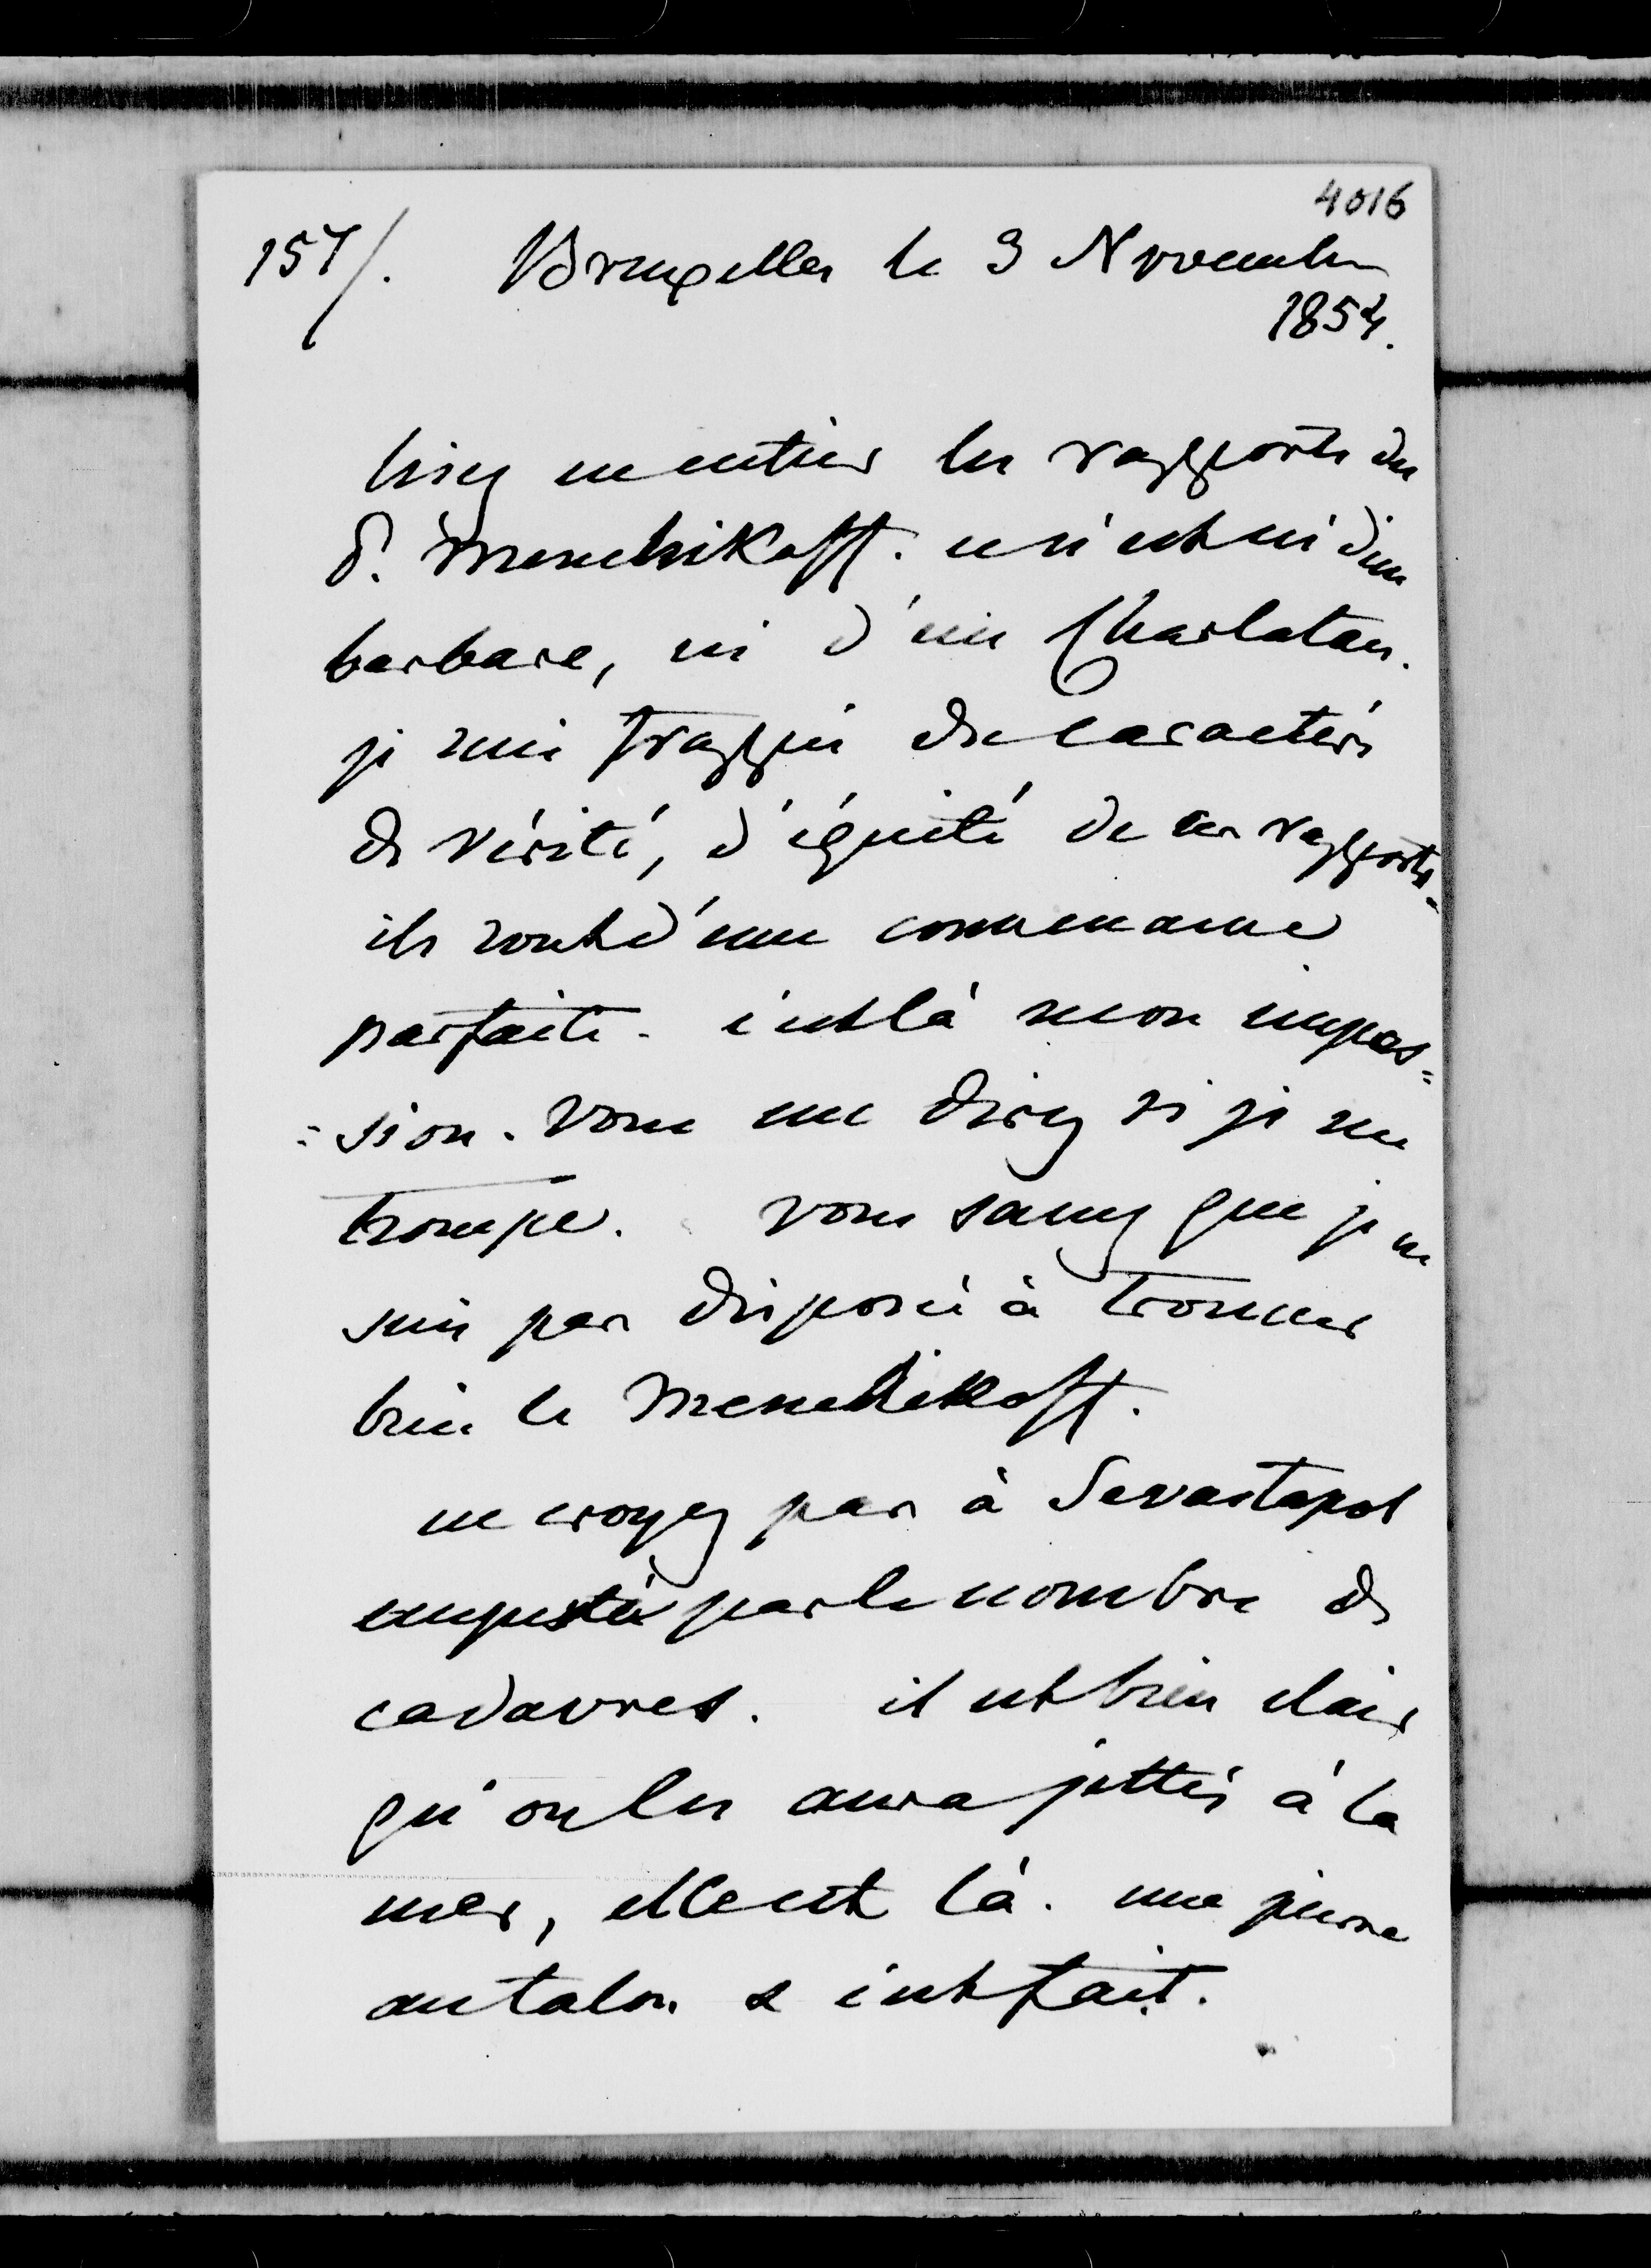 4016
157/. Bruxelles le 3 Novembre
1854.
lisez en entier les rapports du
P. Menchikoff. ce n'est ni d'un
barbare, ni d'un Charlatan.
je suis frappée du caractère
de vérité, d'équité de ces rapports.
ils sont d'une convenance
parfaite. c'est là mon impres=
=sion. vous me direz si je me
trompe. vous savez que je ne
suis pas disposée à trouver
bien le Menchikoff.
ne croyez pas à Sevastopol
empesté par le nombre de
cadavres. il est bien clair
qu'on les aura jettés à la
mer, elle est là. une pierre
au talon & c'est fait.